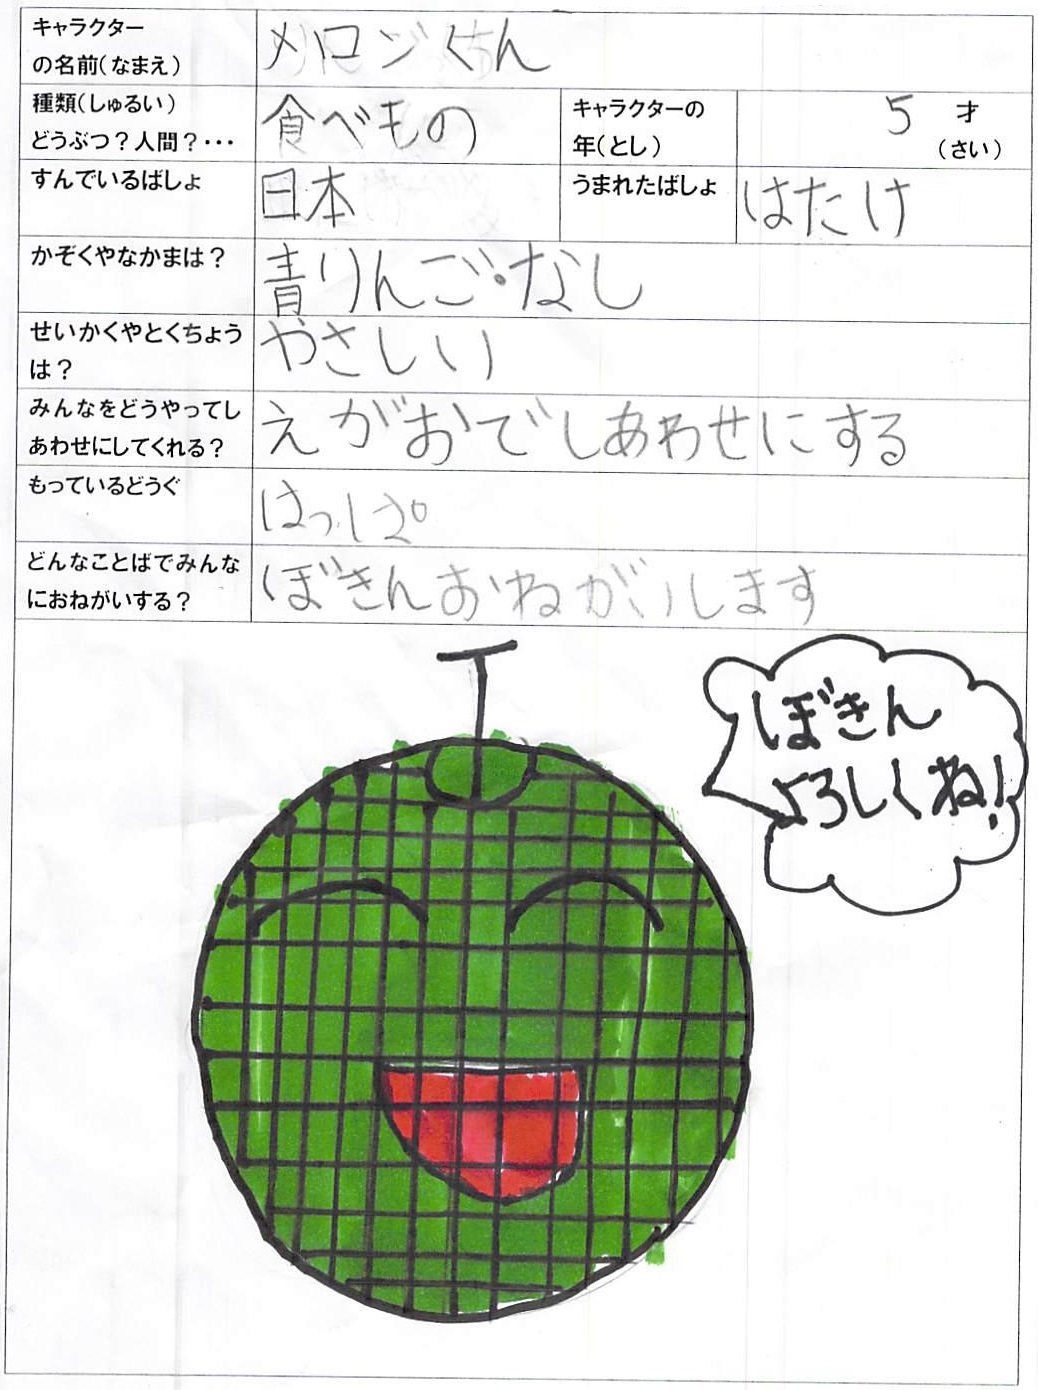 キャラクター
の名前(なまえ)
メロンくん
種類(しゅるい)
どうぶつ？人間？・・・
食べもの
キャラクターの
年(とし)
5 才
(さい)
すんでいるばしょ
日本
うまれたばしょ
はたけ
かぞくやなかまは？
青りんご・なし
せいかくやとくちょう
は？
やさしい
みんなをどうやってし
あわせにしてくれる？
えがおでしあわせにする
もっているどうぐ
はっぱ
どんなことばでみんな
におねがいする？
ぼきんおねがいします
ぼきん
よろしくね!